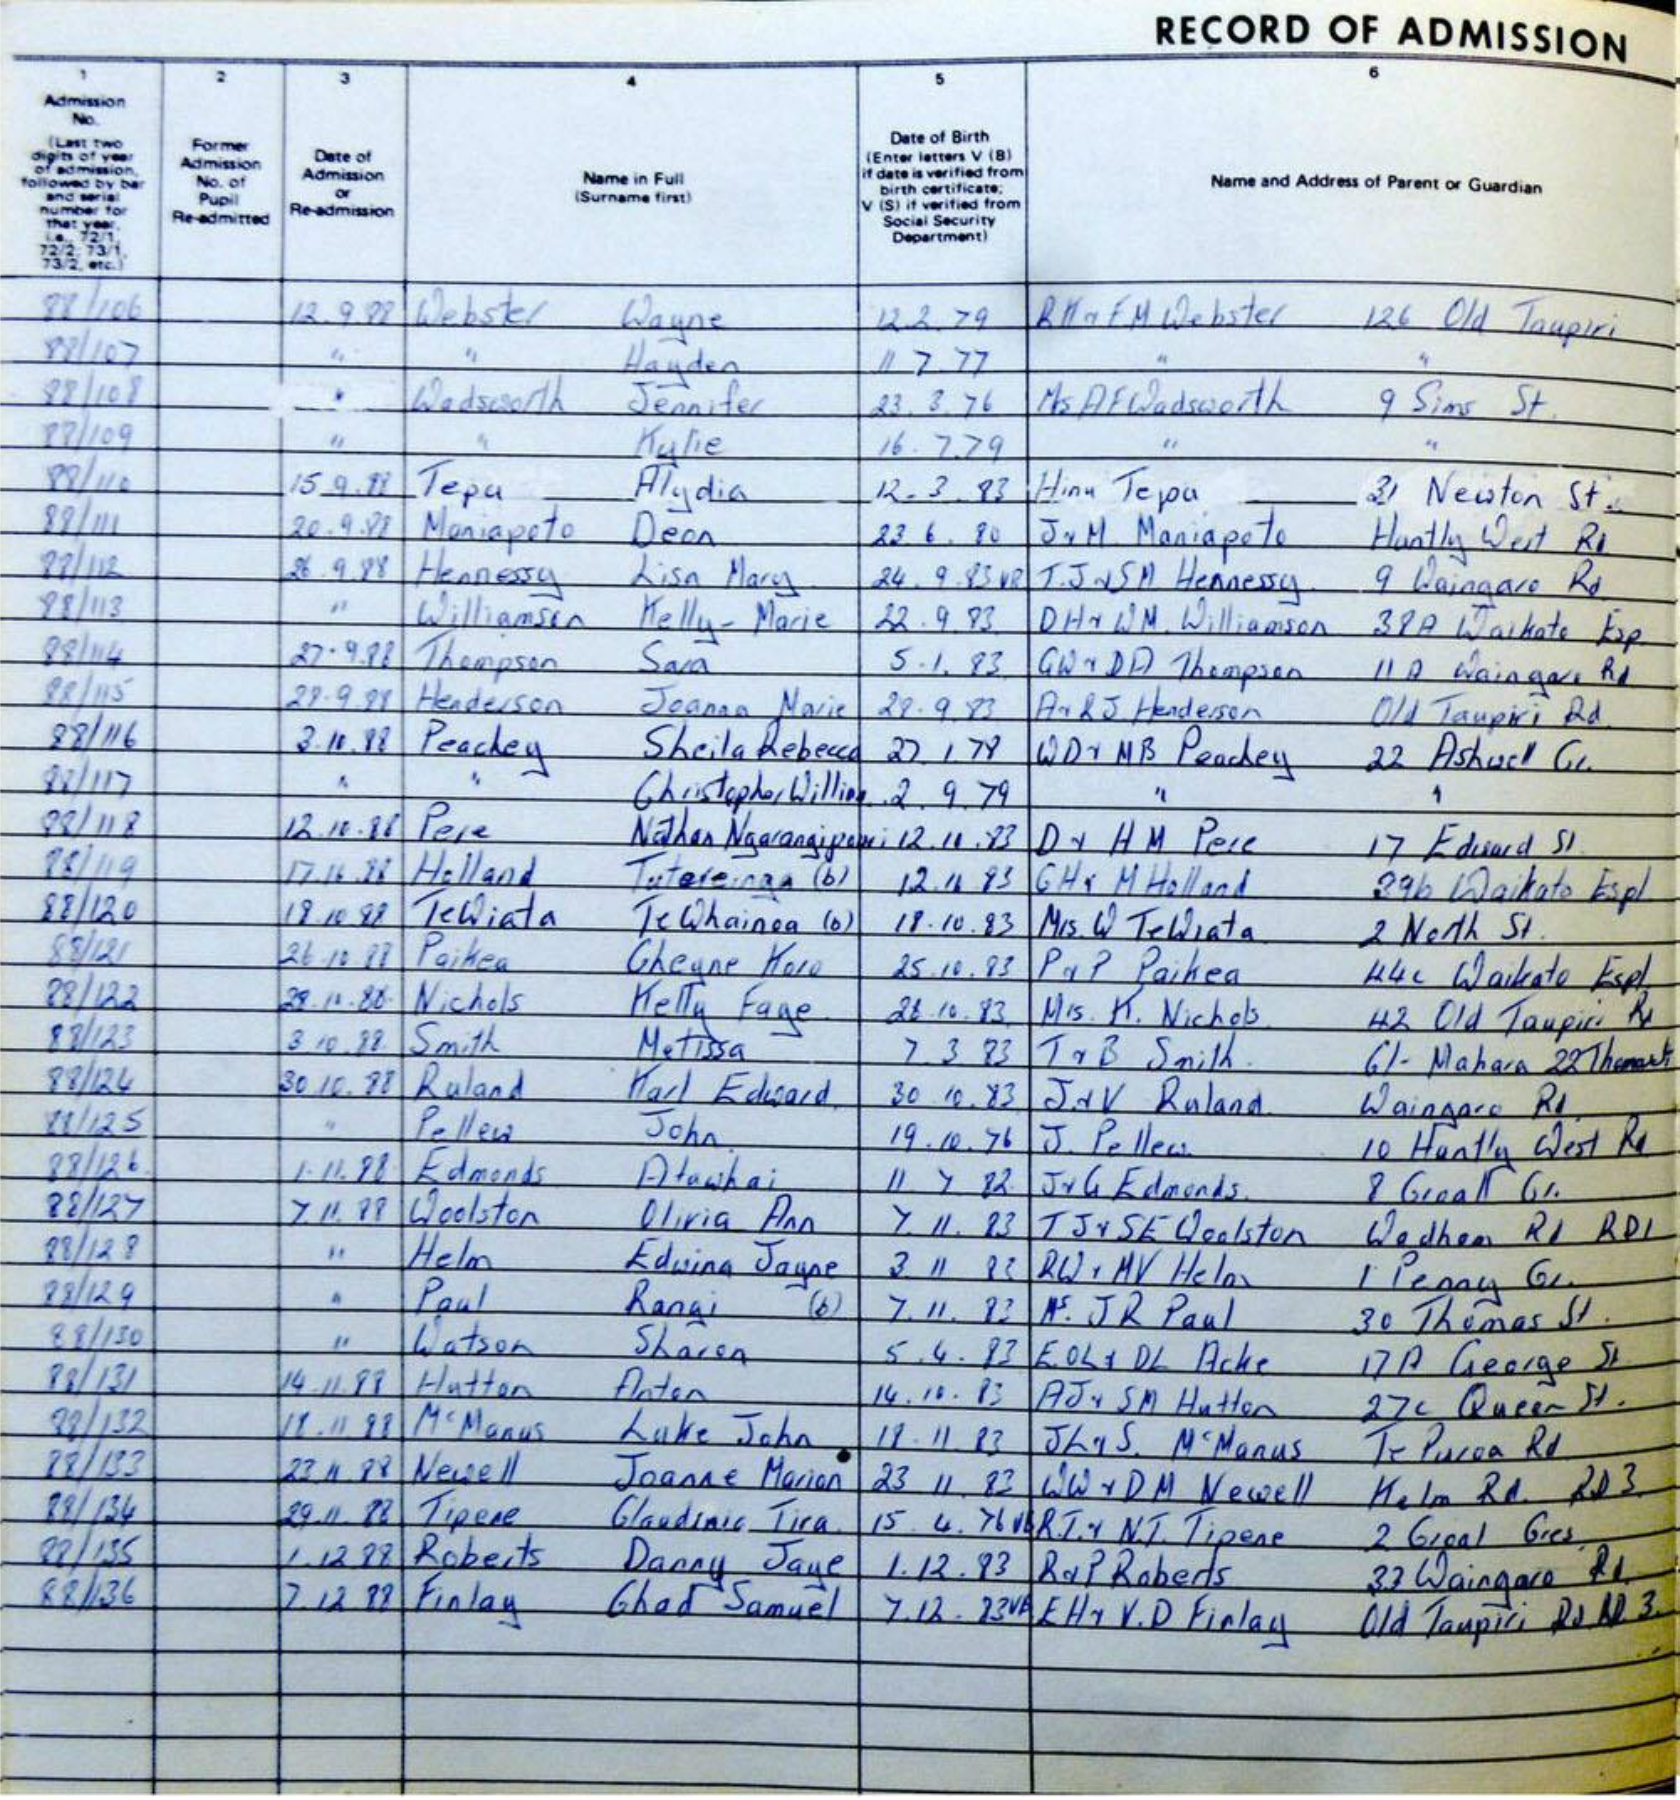 RECORD OF ADMISSION
1 2 3 4 5 6
Admission No. (Last two digits of year of admission, followed by bar and serial number for that year, i.e., 72/1, 72/2, 73/1, 73/2, etc.)
Former Admission No. of Pupil Re-admitted
Date of Admission or Re-admission
Name in Full (Surname first)
Date of Birth (Enter letters V (B) if date is verified from birth certificate; V (S) if verified from Social Security Department)
Name and Address of Parent or Guardian
88/106 12.9.88 Webster Wayne 12.2.79 RH & FM Webster 126 Old Taupiri
88/107 " " Hayden 11 7.77 " "
88/108 " Wadsworth Jennifer 23.3.76 Ms AF Wadsworth 9 Sims St.
88/109 " " Kylie 16.7.79 " "
88/110 15.9.88 Tepu Alydia 12.3.83 Hinu Tepu 31 Newton St.
88/111 20.9.88 Maniapoto Deon 23.6.80 J & M Maniapoto Huntly West Rd
88/112 26.9.88 Hennessy Lisa Mary 24.9.83 VB T.J & SM Hennessy 9 Waingaro Rd
88/113 " Williamson Kelly-Marie 22.9.83 DH & WM Williamson 38A Waikato Esp
88/114 27.9.88 Thompson Sara 5.1.83 GW & DA Thompson 11A Waingaro Rd
88/115 28.9.88 Henderson Joanna Marie 28.9.83 A & J Henderson Old Taupiri Rd
88/116 3.10.88 Peachey Sheila Rebecca 27.1.78 WD & MB Peachey 22 Ashwell Cr.
88/117 " " Christopher William 2.9.79 " "
88/118 12.10.88 Pere Nathan 12.10.83 D & HM Pere 17 Edward St
88/119 17.10.88 Holland (b) 12.10.83 GH & M Holland 39b Waikato Espl
88/120 18.10.88 TeWiata TeWhainoa (b) 18.10.83 Mrs. W TeWiata 2 North St.
88/121 26.10.88 Paikea Cheyne Koro 25.10.83 P & P Paikea 44c Waikato Espl.
88/122 28.10.88 Nichols Kelly Faye 28.10.83 Mrs. K. Nichols 42 Old Taupiri Rd
88/123 3.10.88 Smith Melissa 7 3 83 T & B Smith C/- Mahara 22 Thomas St
88/124 30.10.88 Ruland Karl Edward 30 10.83 J & V Ruland Waingaro Rd
88/125 " Pellew John 19.10.76 J. Pellew 10 Huntly West Rd
88/126 1.11.88 Edmonds Atawhai 11 7 82 J & G Edmonds 8 Croall Cr.
88/127 7.11.88 Woolston Olivia Ann 7.11.83 TJ & SE Woolston Wadham Rd RD1
88/128 " Helm Edwina Jayne 3 11 83 RW & MV Helm 1 Penny Cr.
88/129 " Paul Rangi (b) 7.11.83 Ms. JR Paul 30 Thomas St.
88/130 " Watson Sharon 5.4.83 DL Acke 17A George St
88/131 14.11.88 Hutton Anton 14.10.83 AJ & SM Hutton 27c Queen St.
88/132 18.11.88 McManus Luke John 18.11.83 JL & S. McManus Te Puroa Rd
88/133 23.11.88 Newell Joanne Marion 23 11 83 WW & DM Newell Helm Rd. RD3
88/134 29.11.88 Tipene Tira 15.4.76 VB R.T. & N.T. Tipene 2 Croal Cres.
88/135 1.12.88 Roberts Danny Jaye 1.12.83 R & P Roberts 33 Waingaro Rd
88/136 7.12.88 Finlay Chad Samuel 7.12.83 VB EH & V.D Finlay Old Taupiri Rd RD 3.